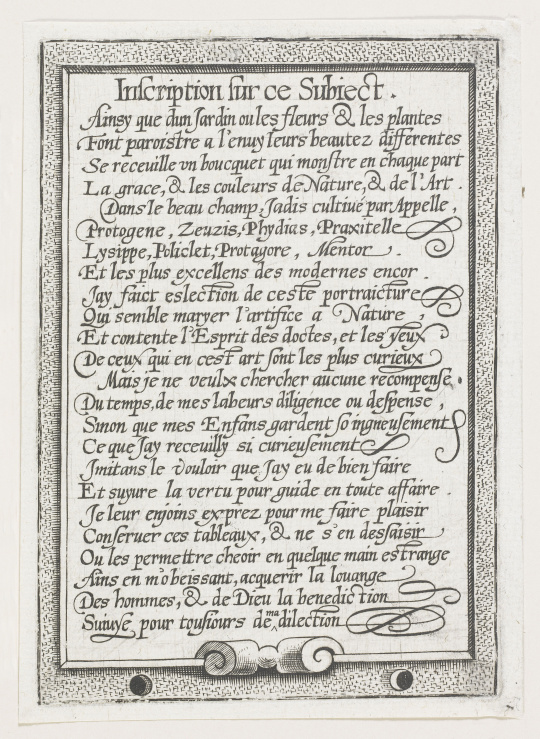 Inscription sur ce Subiect .
Ainsy que dun Jardin ou les fleurs & les plantes
Font paroistre a l'enuy leurs beautez differentes
Se receuille vn boucquet qui monstre en chaque part
La grace, & les couleurs de Nature, & de l'Art .
Dans le beau champ, Jadis cultiué par Appelle ,
Protogene , Zeuzis, Phydias, Praxitelle
Lysippe, Policlet, Protagore , Mentor .
Et les plus excellens des modernes encor .
Jay faict eslection de ceste portraicture
Qui semble maryer l'artifice a Nature ,
Et contente l'Esprit des doctes, et les yeux
De ceux, qui en cest art sont les plus curieux
Mais je ne veulx chercher aucune recompense .
Du temps, de mes labeurs diligence ou despense ,
Sinon que mes Enfans gardent soingneusement
Ce que Jay receuilly si curieusement
Jmitans le vouloir que Jay eu de bien faire
Et suyure la vertu pour guide en toute affaire .
Je leur enjoins exprez pour me faire plaisir
Conseruer ces tableaux, & ne s'en dessaisir
Ou les permettre cheoir en quelque main estrange
Ains en m'obeissant, acquerir la louange
Des hommes, & de Dieu la benediction
Suiuye pour tousiours de ma dilection